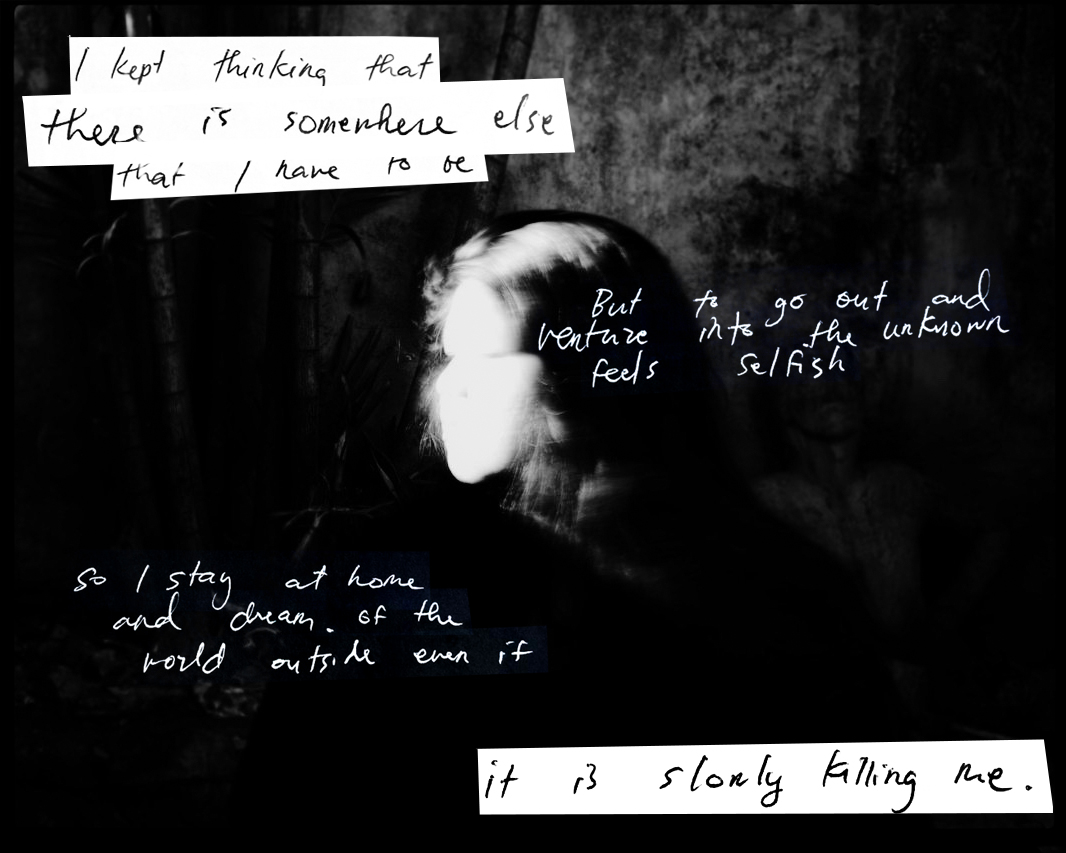 I kept thinking that
there is somewhere else
that I have to be
But to go out and
venture into the unknown
feels selfish
so I stay at home
and dream. of the
world outside even if
it is slowly killing me.